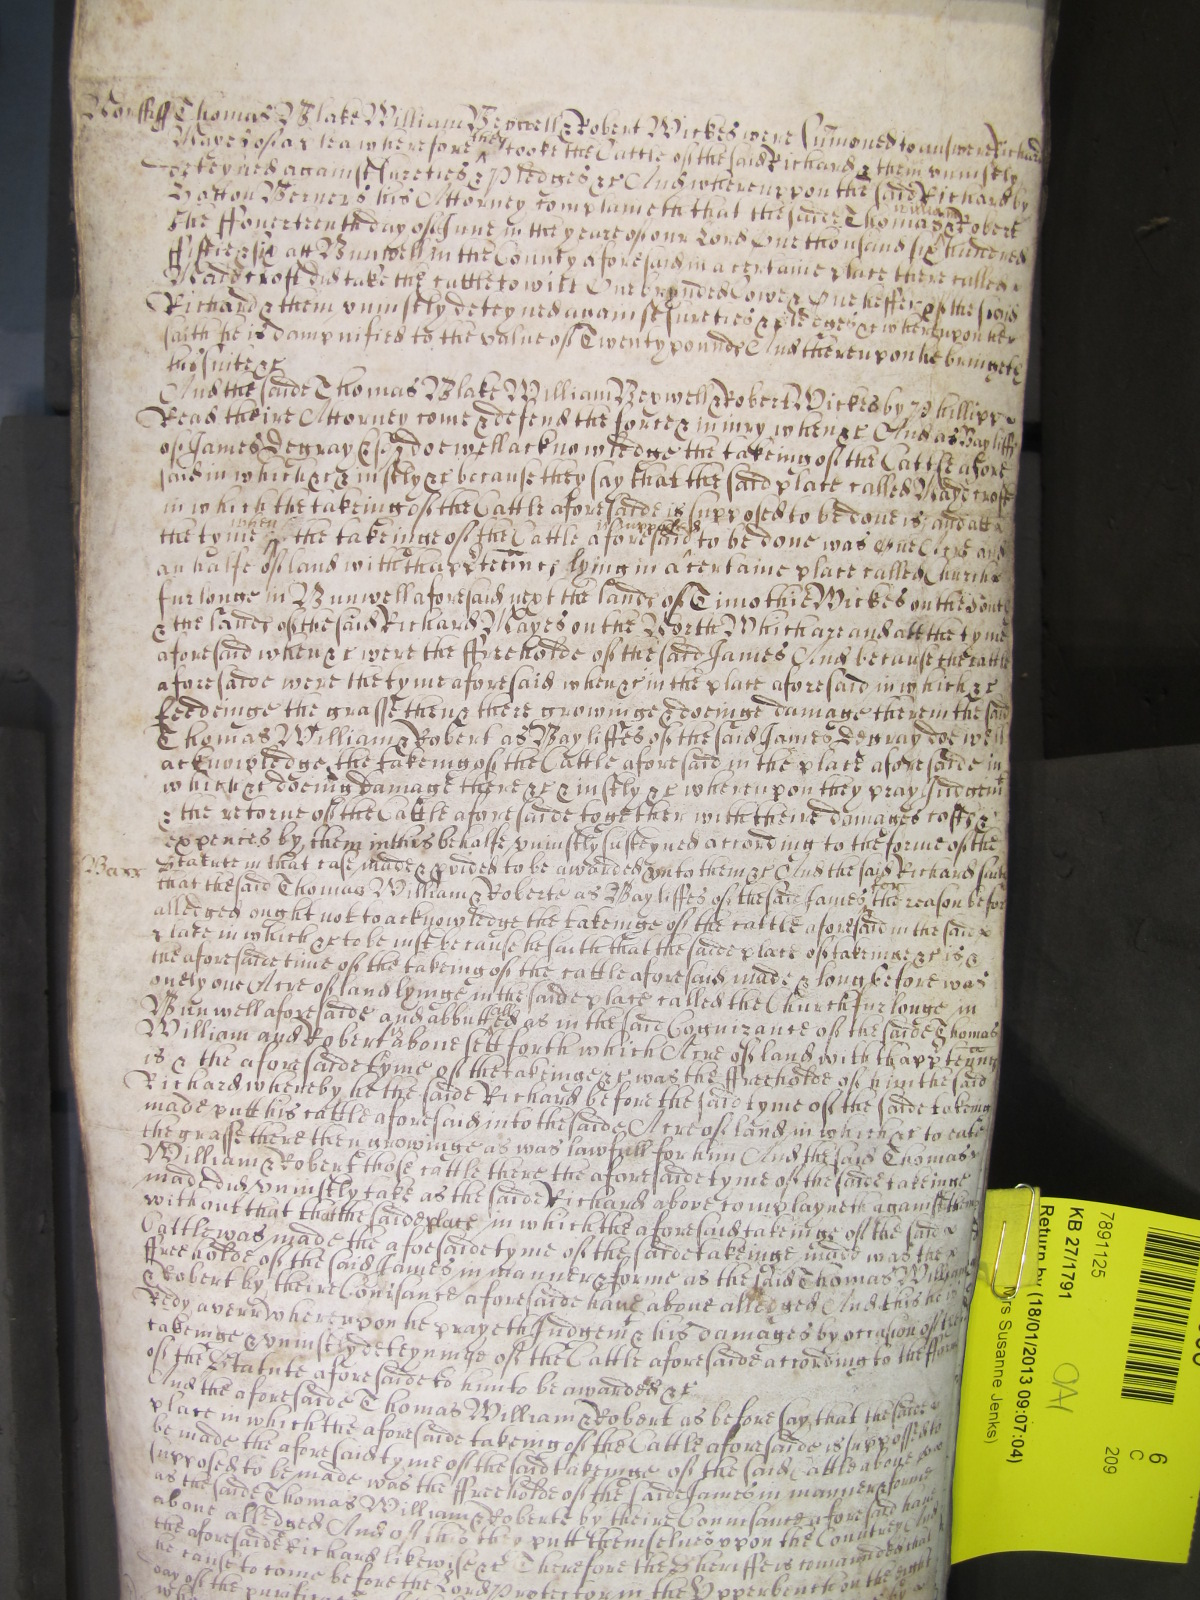 Norff ss Thomas Blake William Bexwell & Robert Wickes were sumoned to answere Richard
Mayes of a plea wherefore they tooke the Cattle of the said Richard & them uniustly
deteyned against sureties & pledges &c And whereuppon the said Richard by
Sotton Berners his Attorney complaineth that the saide Thomas William & Robert
the ffourteenth day of June in the yeare of our Lord One thousand six hundred
fiftie six att Bunwell in the County aforesaid in a certaine place there called
did take the cattle to witt One brynded Cowe & One heffer of the said
Richard & them uniustly deteyned against sureties & pledges &c whereupon hee
saith he is dampnified to the value of Twenty pounds And thereupon he bringeth
this suite &c
And the saide Thomas Blake William Bexwell & Robert Wickes by Phillipp
Read theire Attorney come & defend the force & iniury when &c And as Bayliffs
of James Degray Esqr doe well acknowledge the takeing of the Cattle afore
said in which &c & iustly &c because they say that the said place called
in which the takeing of the Cattle aforesaide is supposed to be done is and att
the tyme when the takeinge of the Cattle aforesaid is supposed to be done was One Acre and
an halfe of land with thappurtenncs lying in a certaine place called Church
furlonge in Bunwell aforesaid next the lands of Timothie Wickes on the South
& the lands of the said Richard Mayes on the North Which are and att the tyme
aforesaid when &c were the ffreeholde of the said James And because the cattle
aforesaide were the tyme aforesaid when &c in the place aforesaid in which &c
feedeinge the grasse then & there growinge & doeinge damage there in the said
Thomas William & Robert as Bayliffes of the said James Degray doe well
acknowledge the takeing of the Cattle aforesaid in the place aforesaide in
which &c doeing damage there &c & iustly &c whereupon they pray Judgemt
& the retorne of the Cattle aforesaide together with theire damages costs &
expences by them in this behalfe uniustly susteyned according to the forme of the
Statute in that case made & pvided to be awarded unto them &c And the said Richard saith
Barr
that the said Thomas William & Roberte as Bayliffes of the said James for the reason before
alledged ought not to acknowledge the takeinge of the cattle aforesaid in the said
place in which &c to be iust because he saith that the saide place of takeinge &c is &
the aforesaide time of the takeing of the cattle aforesaid made & longe before was
onely one Acre of land lyinge in the saide place called the Church furlonge in
Bunwell aforesaide and abbutted as in the said Cognizance of the saide Thomas
William and Robert is above sett forth which Acre of land with thappurtenncs
is & the aforesaide tyme of the takeinge &c was the ffreeholde of him the said
Richard whereby he the saide Richard before the said tyme of the saide takeing
made putt his cattle aforesaid into the saide Acre of land in which &c to eate
the grasse there then growinge as was lawfull for him And the said Thomas
William & Robert those cattle there the aforesaide tyme of the saide takeinge
made did uniustly take as the saide Richard above complayneth against them
without that that the saide place in which the aforesaid takeinge of the said
Cattle was made the aforesaide tyme of the saide takeinge made was the
ffreeholde of the said James in manner & forme as the said Thomas William
& Robert by theire Conisance aforesaide have above alledged And this he is
Redy averr whereupon he prayeth Judgemt & his damages by occasion of the
takeinge & uniustly deteyninge of the Cattle aforesaide according to the fforme
of the Statute aforesaide to him to be awarded &c
And the aforesaide Thomas William & Robert as before say that the saide
place in which the aforesaide takeing of the Cattle aforesaide is supposed to
be made the aforesaid tyme of the said takeinge of the said Cattle above
supposed to be made was the ffreeholde of the saide James in manner & forme
as the saide Thomas William & Roberte by theire Connisance aforesaid have
above alledged And of this they putt themselves upon the Countrey And
the aforesaide Richard likewise &c Therefore the Sheriffe is comanded that
he cause to come before the Lord Protector in the Upper bench on the
day of the purificacon
7891125
KB 27/1791
Return by (18/01/2013 09:07:04)
rs Susanne Jenks)
OA1
6
C
209